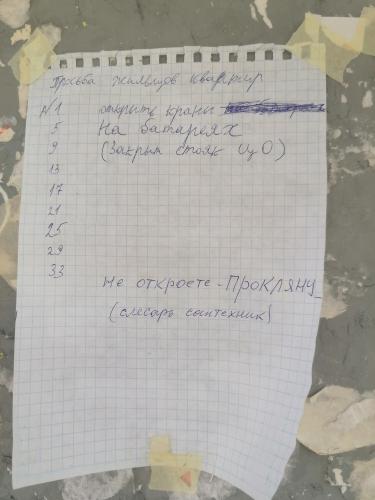 Просьба жильцов квартир
№1 открыть краны
5 На батареях
9 (Закрыт стояк ЦО)
13
17
21
25
29
33
Не откроете - ПРОКЛЯНУ
(слесарь сантехник)